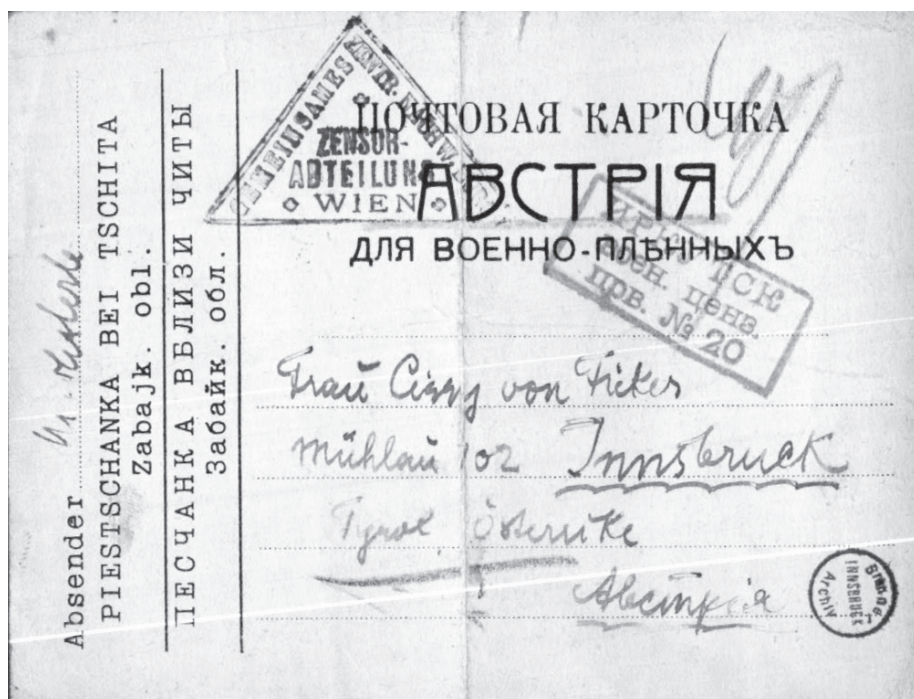 Absender
PIESTSCHANKA BEI TSCHITA
Zabajk. obl.
ПЕСЧАНКА ВБЛИЗИ ЧИТЫ
Забайк. обл.
GEMEINSAMES
ZENSOR-
ABTEILUNG
WIEN
ПОЧТОВАЯ КАРТОЧКА
АВСТРІЯ
ДЛЯ ВОЕННО-ПЛѢННЫХЪ
ИРКУТСК
воен. ценз.
црв. № 20
Frau Cissy von Ficker
Mühlau 102 Innsbruck
Tyrol
Австрія
Brenner
INNSBRUCK
Archiv